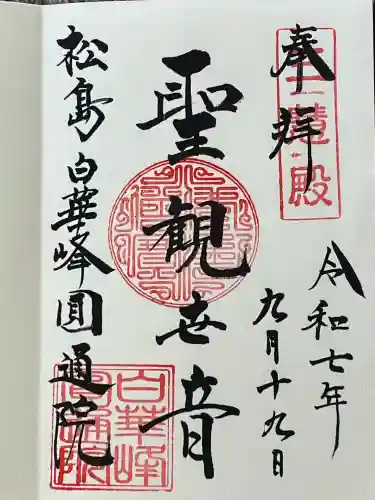 奉拝
三慧殿
令和七年
九月十九日
聖観世音
松島 白華峰 圓通院
白華峰
圓通院